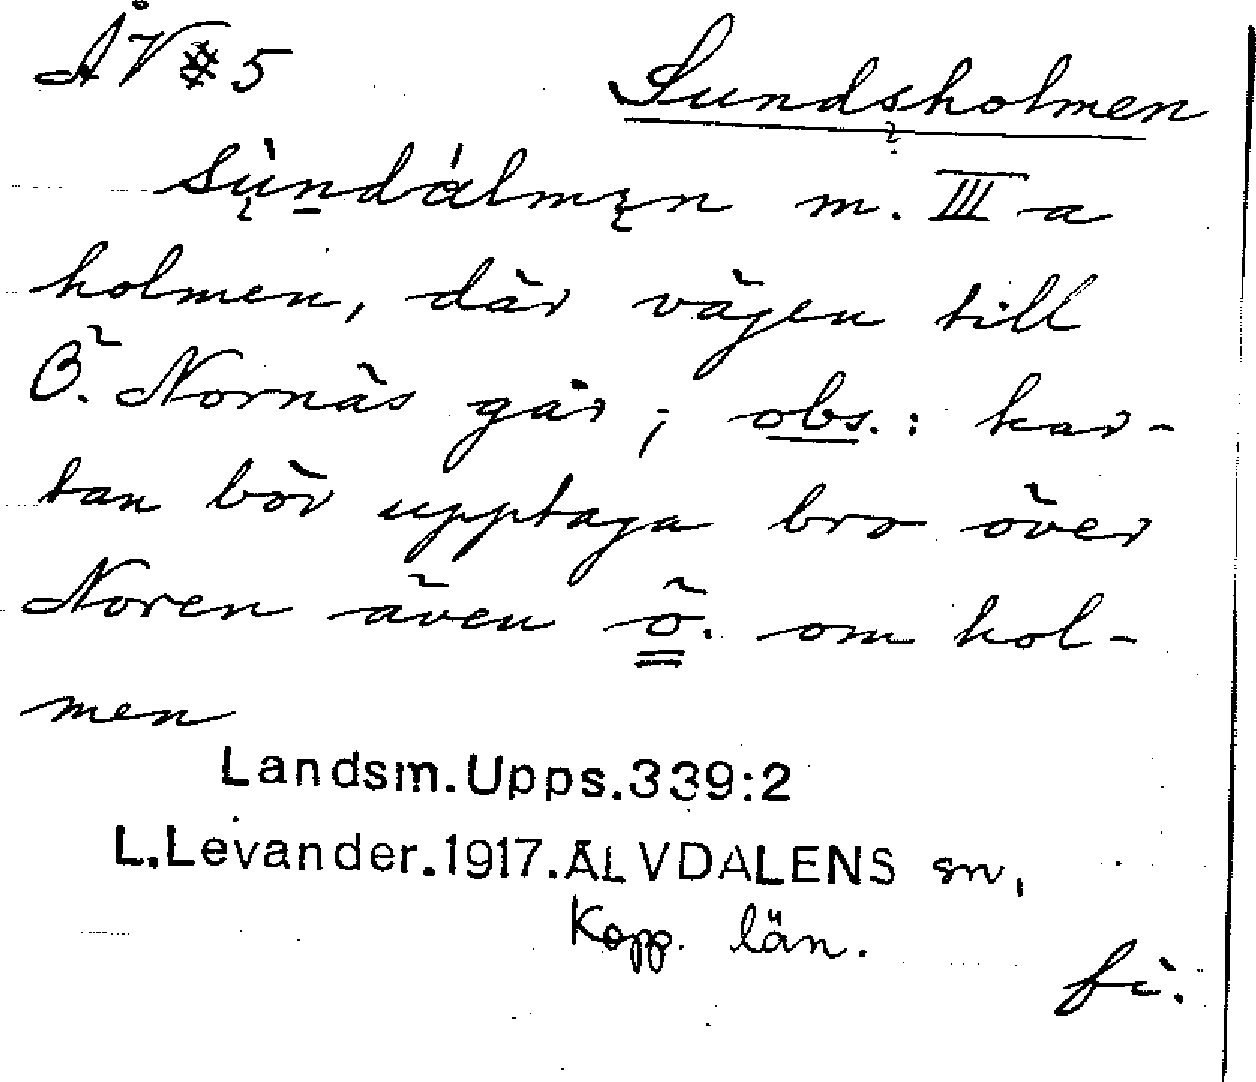 ÅV 5 Sundsholmen
sùndálmęn m. III a
holmen, där vägen till
Ö. Nornäs går; obs.: kar-
tan bör upptaga bro över
Noren även ö. om hol-
men
Landsm.Upps.339:2
L.Levander.1917.ÄLVDALENS sn,
Kopp. län.